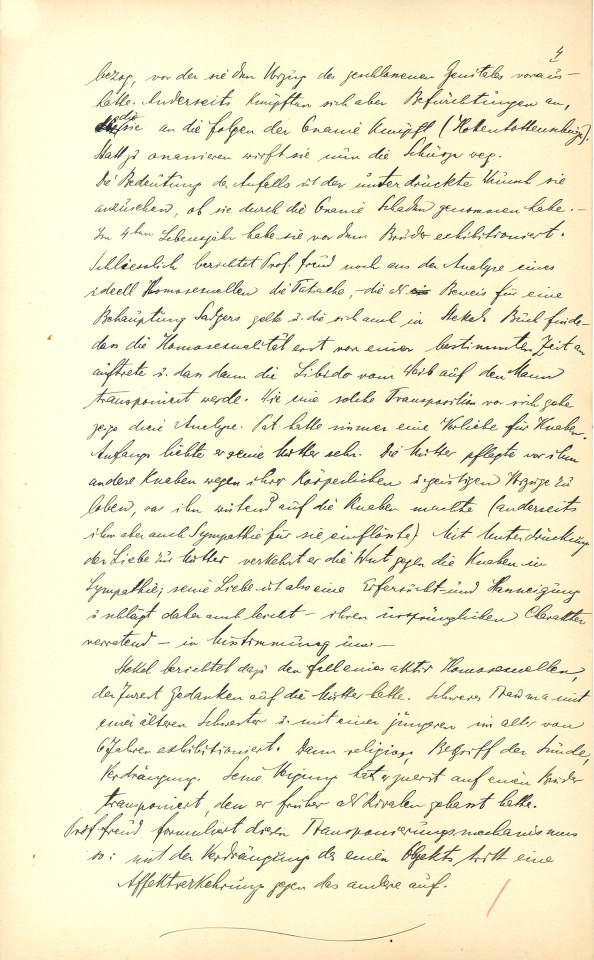 4
bezog, vor der sie den Vorzug des geschlossenen Genitales voraus-
hatte. Anderseits knüpften sich aber Befürchtungen an,
die sie an die Folgen der Onanie knüpft (Hottentottenschürze).
Statt zu onanieren wirft sie nun die Schürze weg.
Die Bedeutung des Anfalls ist der unterdrückte Wunsch sie
anzusehen, ob sie durch die Onanie Schaden genommen habe. –
Im 4ten Lebensjahr habe sie vor dem Bruder exhibitioniert.
Schliesslich berichtet Prof. Freud noch aus der Analyse eines
ideell Homosexuellen die Tatsache, die als Beweis für eine
Behauptung Sadgers gelte u. die sich auch in Stekels Buch finde
dass die Homosexualität erst von einer bestimmten Zeit an
auftrete u. dass dann die Libido vom Weib auf den Mann
transponiert werde. Wie eine solche Transposition vor sich gehe
zeige diese Analyse. Pat hatte immer eine Vorliebe für Knaben.
Anfangs liebte er seine Mutter sehr. Die Mutter pflegte vor ihm
andere Knaben wegen ihrer körperlichen u. geistigen Vorzüge zu
loben, was ihn wütend auf die Knaben machte (anderseits
ihm aber auch Sympathie für sie einflösste) Mit Unterdrückung
der Liebe zur Mutter verkehrt er die Wut gegen die Knaben in
Sympathie; seine Liebe ist also eine Eifersucht und Hanneigung
u schlägt daher auch leicht – ihren ursprünglichen Charakter
verratend – in Missstimmung um –
Stekel berichtet dazu den Fall eines aktiv Homosexuellen,
der zuerst Gedanken auf die Mutter hatte. Schweres Trauma mit
einer älteren Schwester u. mit einer jüngeren im Alter von
6 Jahren exhibitioniert. Dann religiös, Begriff der Sünde,
Verdrängung. Seine Neigung hat er zuerst auf einen Bruder
transponiert, den er früher als Rivalen gehasst hatte.
Prof. Freud formuliert diesen Transponierungsmechanismus
so: mit der Verdrängung des einen Objekts tritt eine
Affektverkehrung gegen das andere auf.